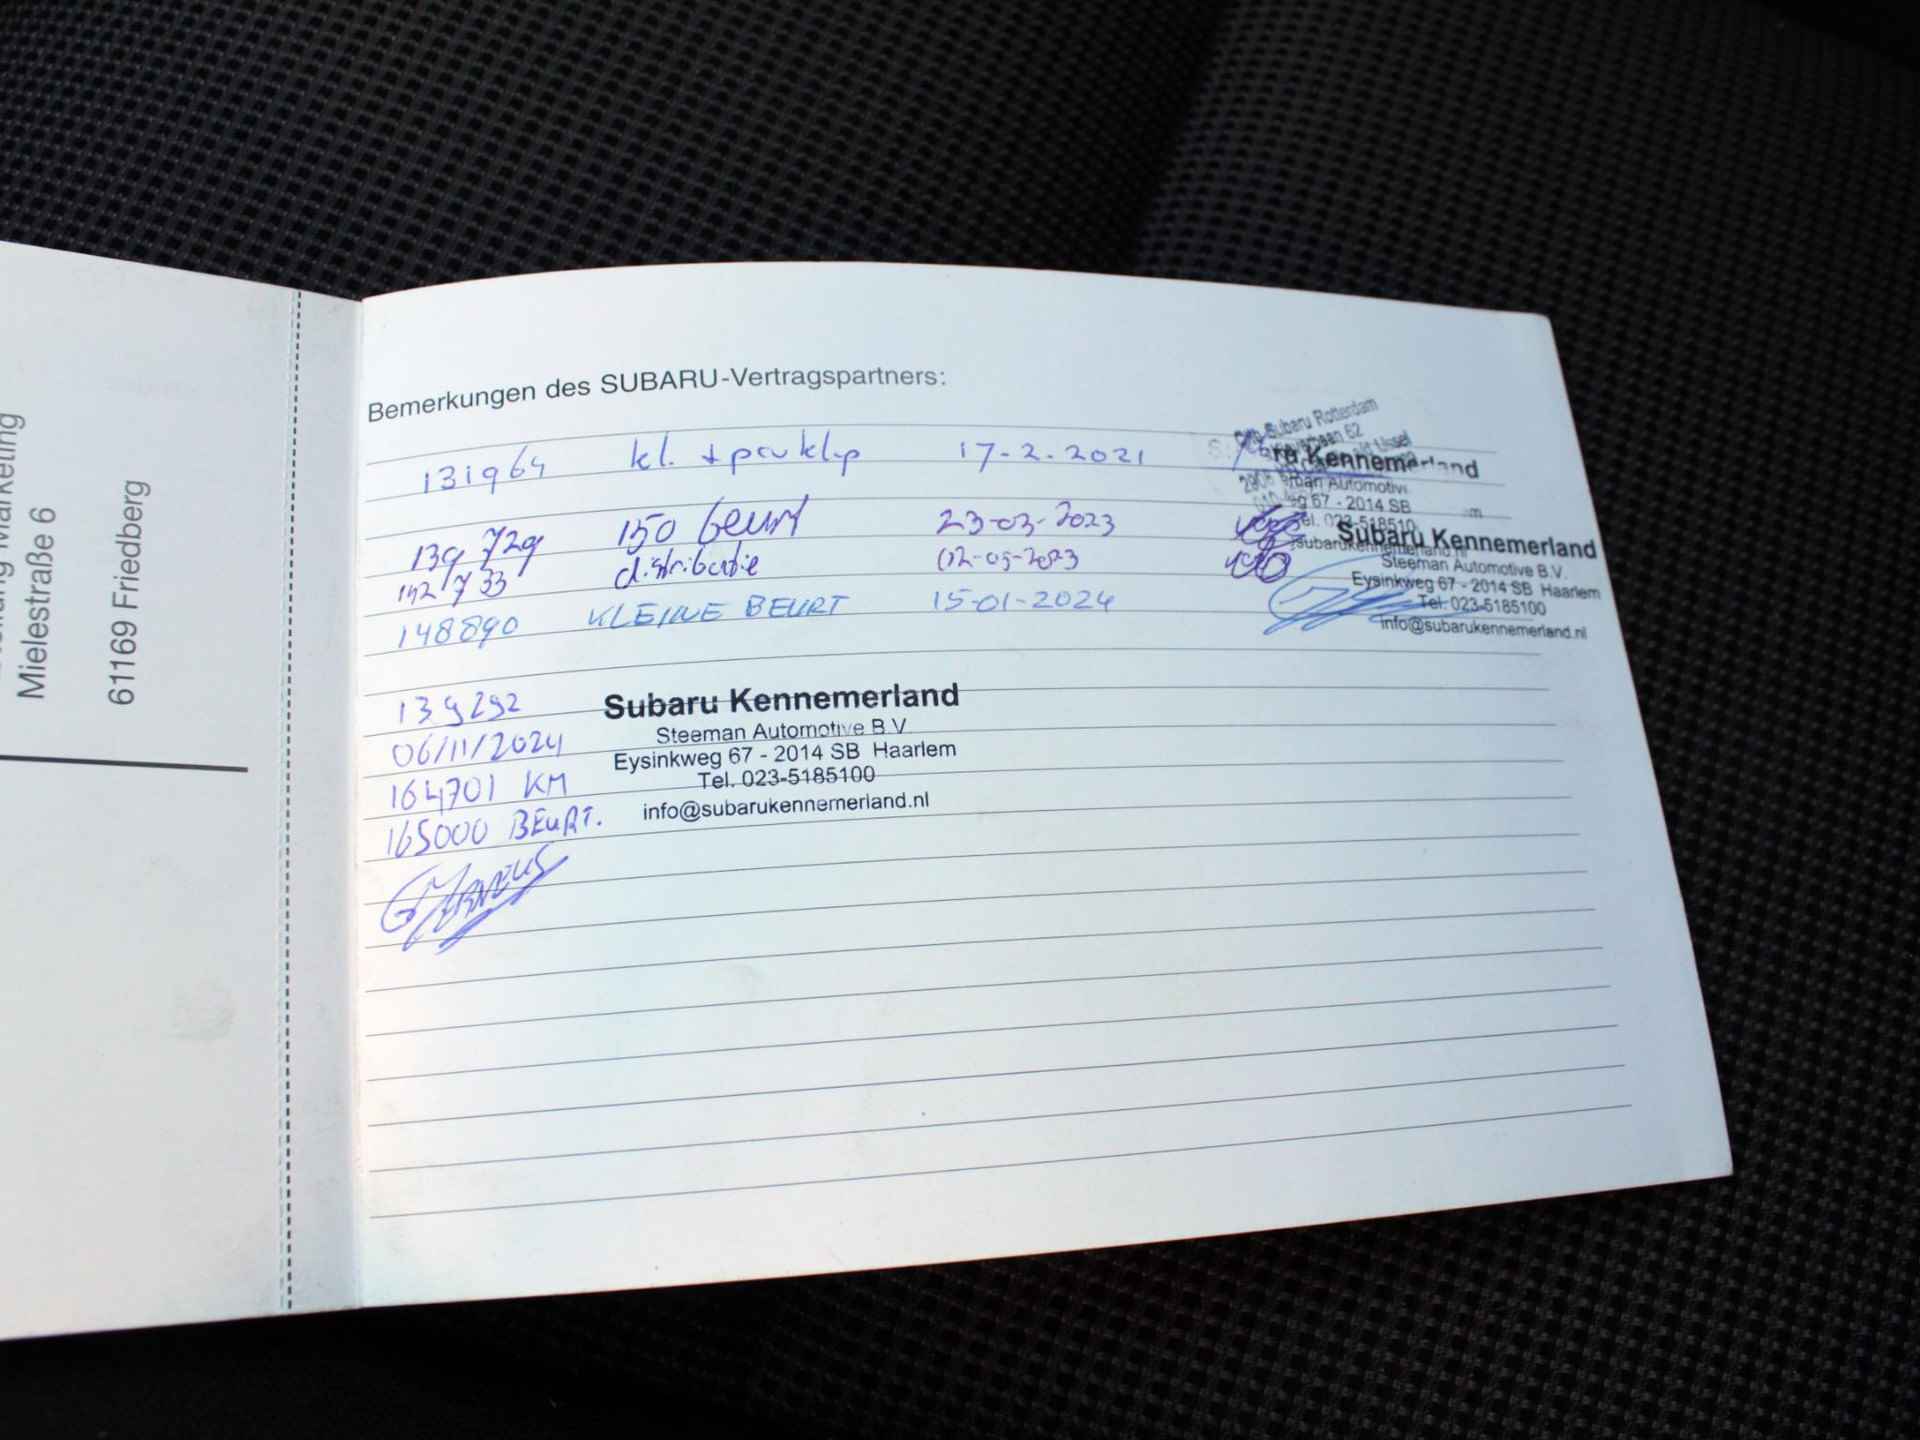 Marketing
Mielestraße 6
61169 Friedberg
Bemerkungen des SUBARU-Vertragspartners:
131964 kl. + 17-2-2021
Subaru Rotterdam
62
IJssel
ru Kennemerland
Automotiv
eg 67 - 2014 SB
el. 023-518510
subarukennemerland.nl
139729 150 beurt 23-03-2023
142733 distributie 02-05-2023
148890 KLEINE BEURT 15-01-2024
Subaru Kennemerland
Steeman Automotive B.V.
Eysinkweg 67 - 2014 SB Haarlem
Tel. 023-5185100
info@subarukennemerland.nl
139292
06/11/2024
164701 KM
165000 BEURT.
Subaru Kennemerland
Steeman Automotive B.V.
Eysinkweg 67 - 2014 SB Haarlem
Tel. 023-5185100
info@subarukennemerland.nl